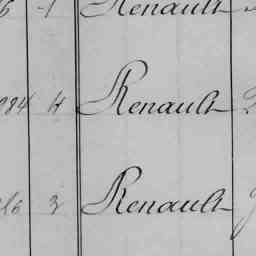 6 1 Renault
984 H Renault
216 3 Renault